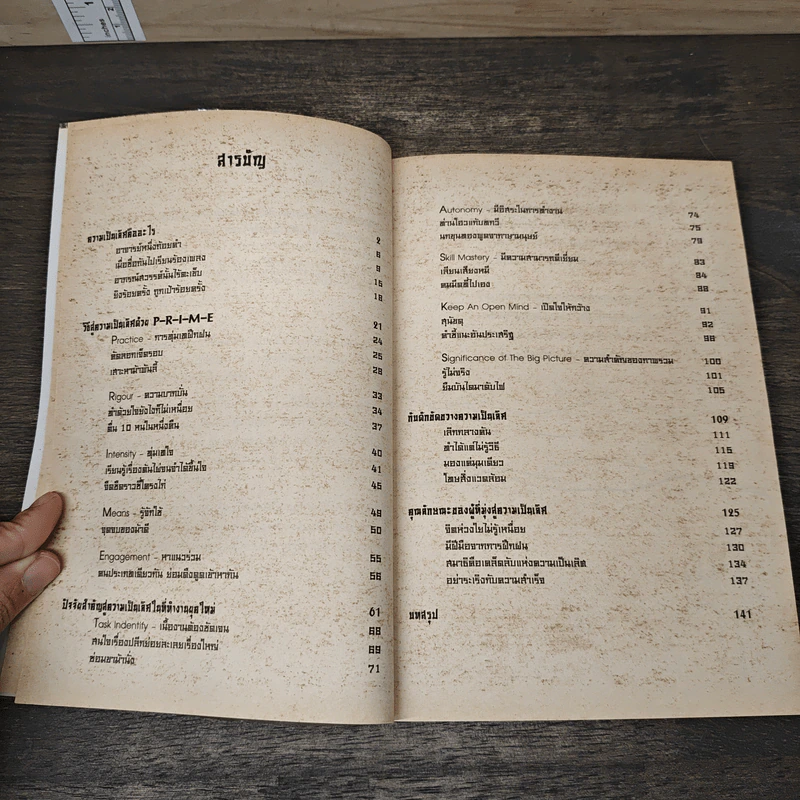 สารบัญ
ความเป็นเลิศคืออะไร 2
อาจารย์หนึ่งท้อยดำ 6
เมื่อซื่อกันไปเรียนร้องเพลง 9
อาจารณ์สวรรค์นั้นไร้ตะเข็บ 15
ยิงร้อยครั้ง ถูกเป้าร้อยครั้ง 18
วิถีสู่ความเป็นเลิศด้วย P-R-I-M-E 21
Practice - การทุ่มเทฝึกฝน 24
ตัดลอกเจ็ดรอบ 25
เสาะหาม้าพันลี้ 28
Rigour - ความบากบั่น 33
ทำด้วยใจยังไงก็ไม่เหนื่อย 34
ตื่น 10 หนในหนึ่งคืน 37
Intensity - ทุ่มเทใจ 40
เรียนรู้เรื่องต้นไผ่จนจำได้ขึ้นใจ 41
จิตอีตราวธี่ไตรงไก่ 45
Means - รู้จักใช้ 49
จุดจบของม้าดี 50
Engagement - หาแนวร่วม 55
คนประเภทเดียวกัน ย่อมดึงดูดเข้าหากัน 56
ปัจจัยสำคัญสู่ความเป็นเลิศในที่ทำงานยุคใหม่ 61
Task Indentity - เนื้องานต้องชัดเจน 68
สนใจเรื่องปลีกย่อยละเลยเรื่องใหญ่ 69
ซ่อมขาม้านั่ง 71
Autonomy - มีอิสระในการทำงาน 74
ด่านโอวแก้บทกวี 75
บทขุนตองพูดจาภาษามนุษย์ 79
Skill Mastery - มีความสามารถดีเยี่ยม 83
เลียนเสียงหมี 84
คนมีดตีไปเอง 88
Keep An Open Mind - เปิดใจให้กว้าง 91
สุนัขดุ 92
คำชี้แนะอันประเสริฐ 96
Significance of The Big Picture - ความสำคัญของภาพรวม 100
รู้ไม่จริง 101
ยืมบันไดมาดับไฟ 105
กับดักขัดขวางความเป็นเลิศ 109
เลิกกลางคัน 111
ทำได้แต่ไม่รู้วิธี 115
มองแค่มุมเดียว 119
โทษสิ่งแวดล้อม 122
คุณลักษณะของผู้ที่มุ่งสู่ความเป็นเลิศ 125
จิตห่วงใยไม่รู้เหนื่อย 127
มีฝีมือจากการฝึกฝน 130
สมาธิคือเคล็ดลับแห่งความเป็นเลิศ 134
อย่าระเริงกับความสำเร็จ 137
บทสรุป 141